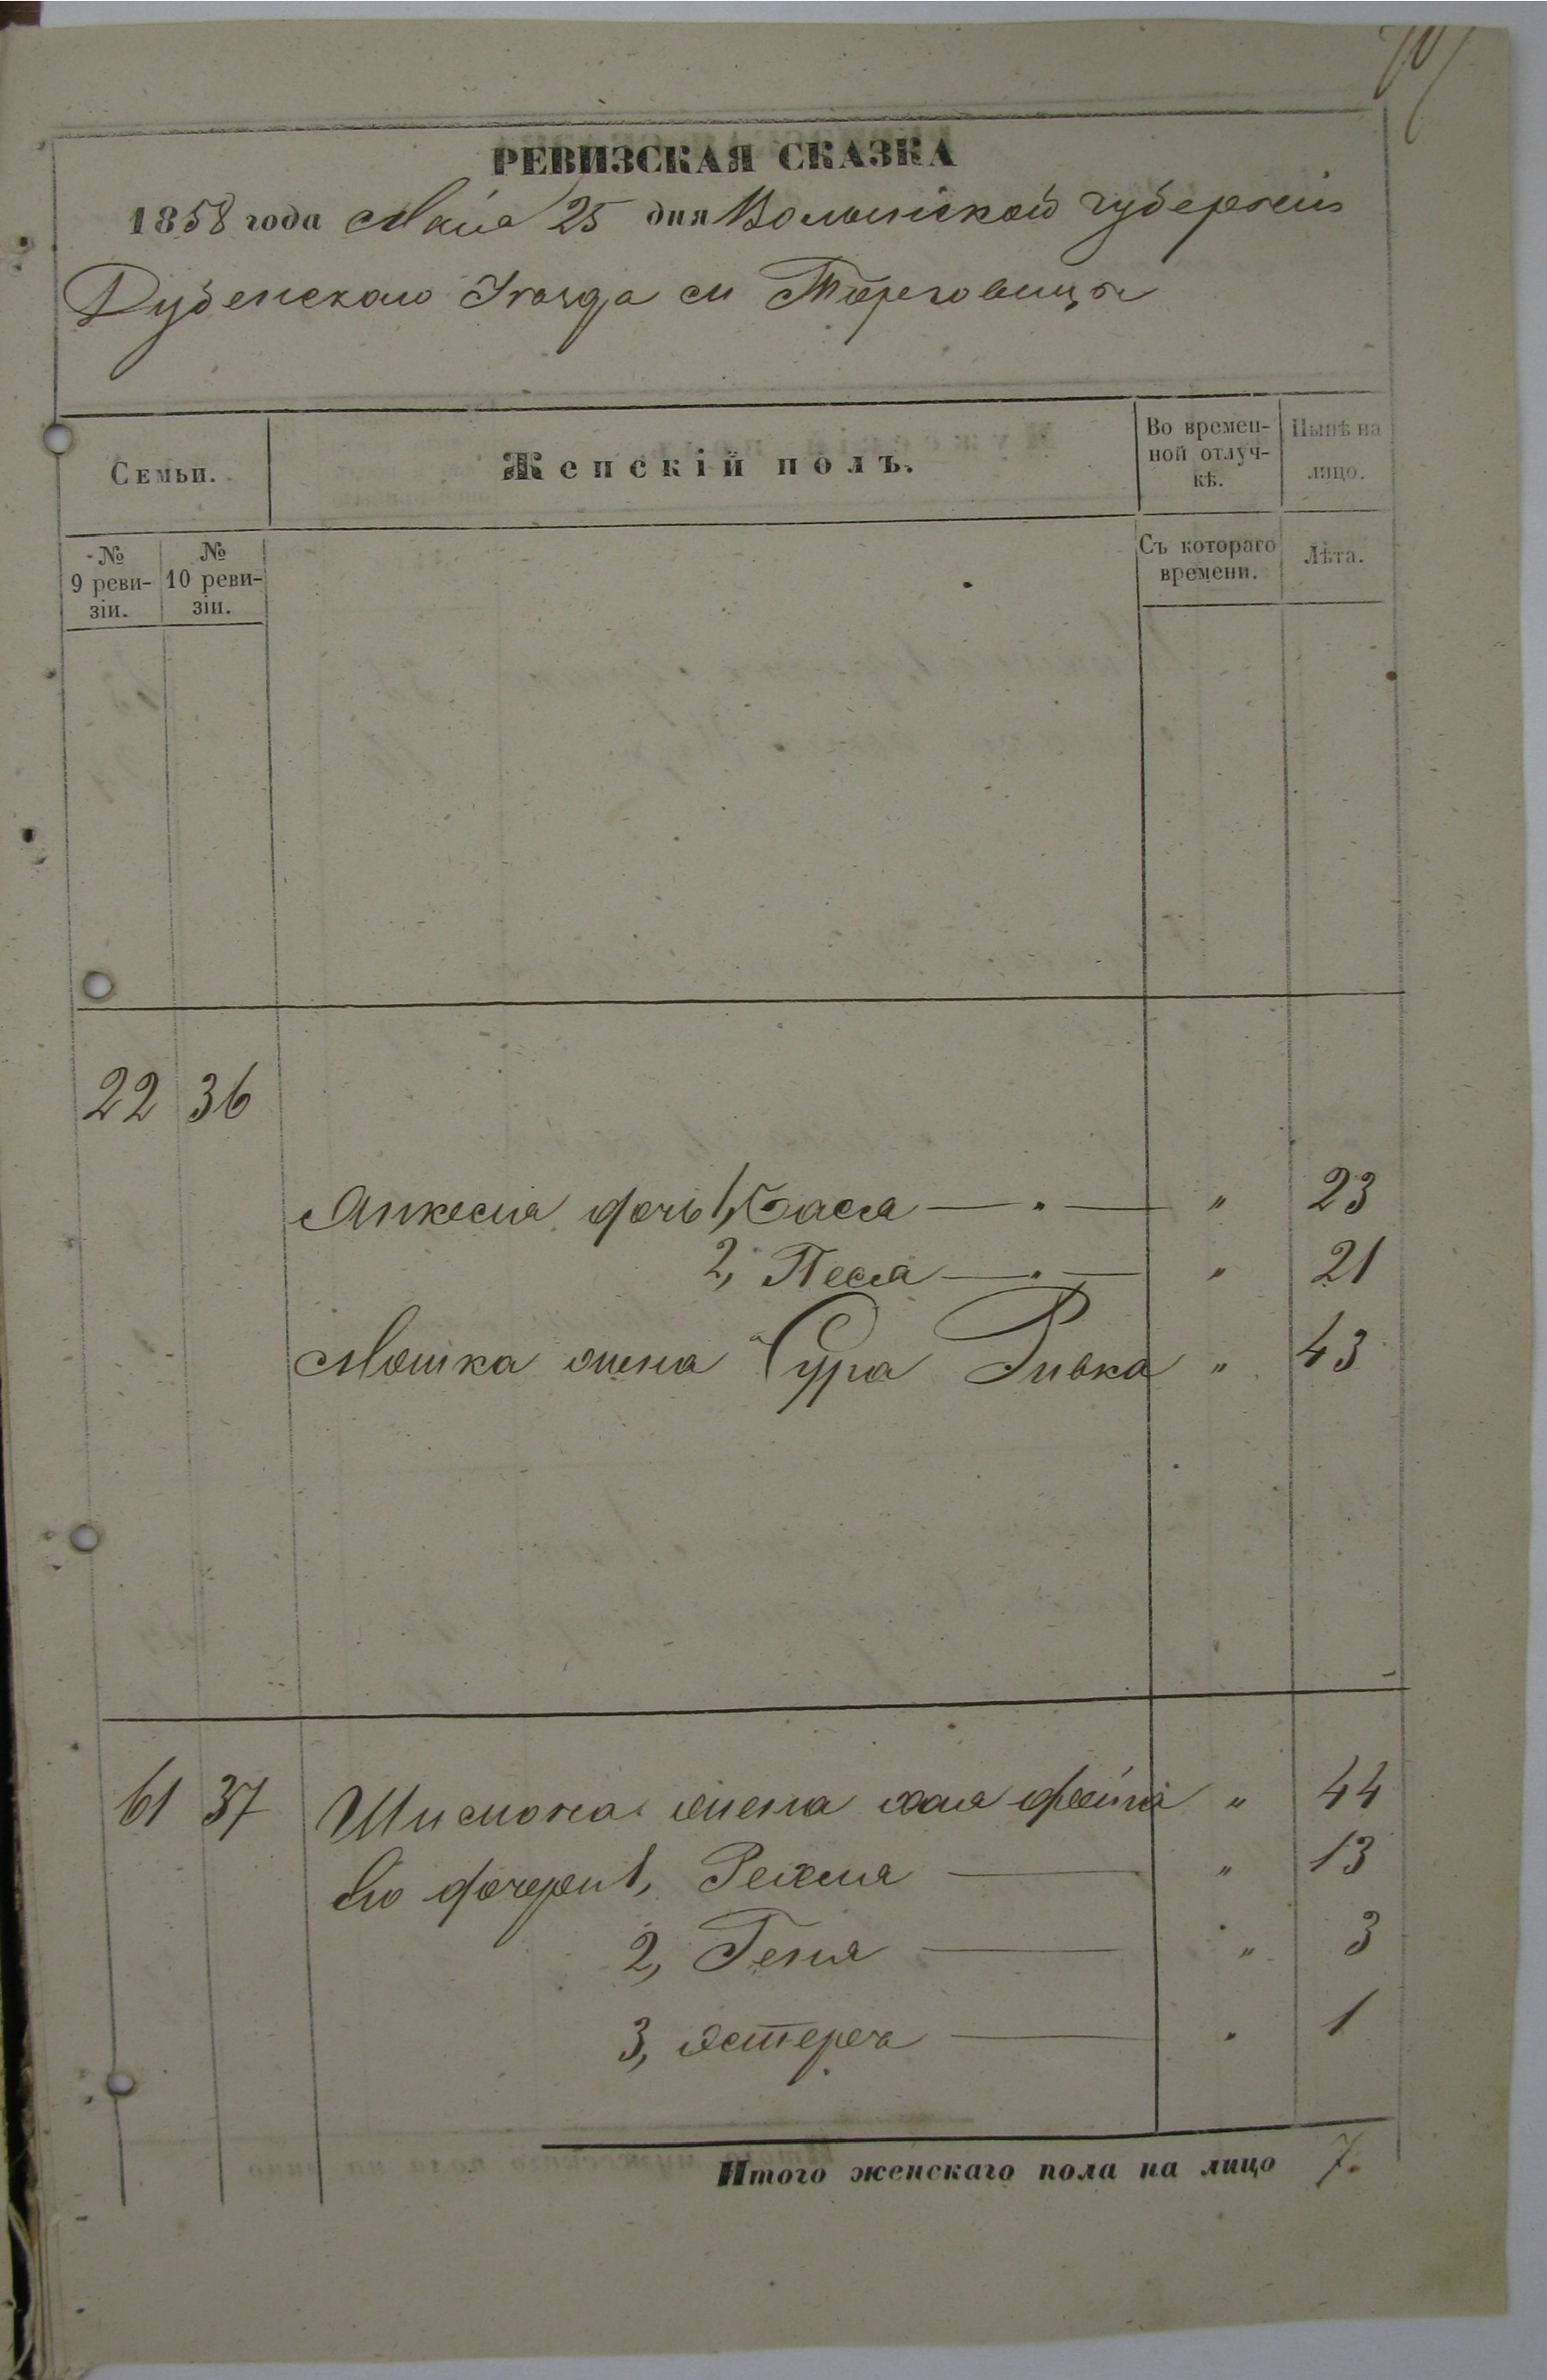 РЕВИЗСКАЯ СКАЗКА
1858 года Мая 25 дня Волынской губернии
Дубенскаго Уѣзда м Торговицы
Семьи.
Женскій полъ.
Во времен-
ной отлуч-
кѣ.
Нынѣ на
лицо.
№
9 реви-
зіи.
№
10 реви-
зіи.
Съ котораго
времени.
Лѣта.
22 36
дочь 1, Бася — . — " 23
2, Песя — . — " 21
Мошка жена Сура Ривка " 43
61 37 жена Хая " 44
Его дочери 1, — " 13
2, Геня — " 3
3, Эстера — " 1
Итого женскаго пола на лицо 7.